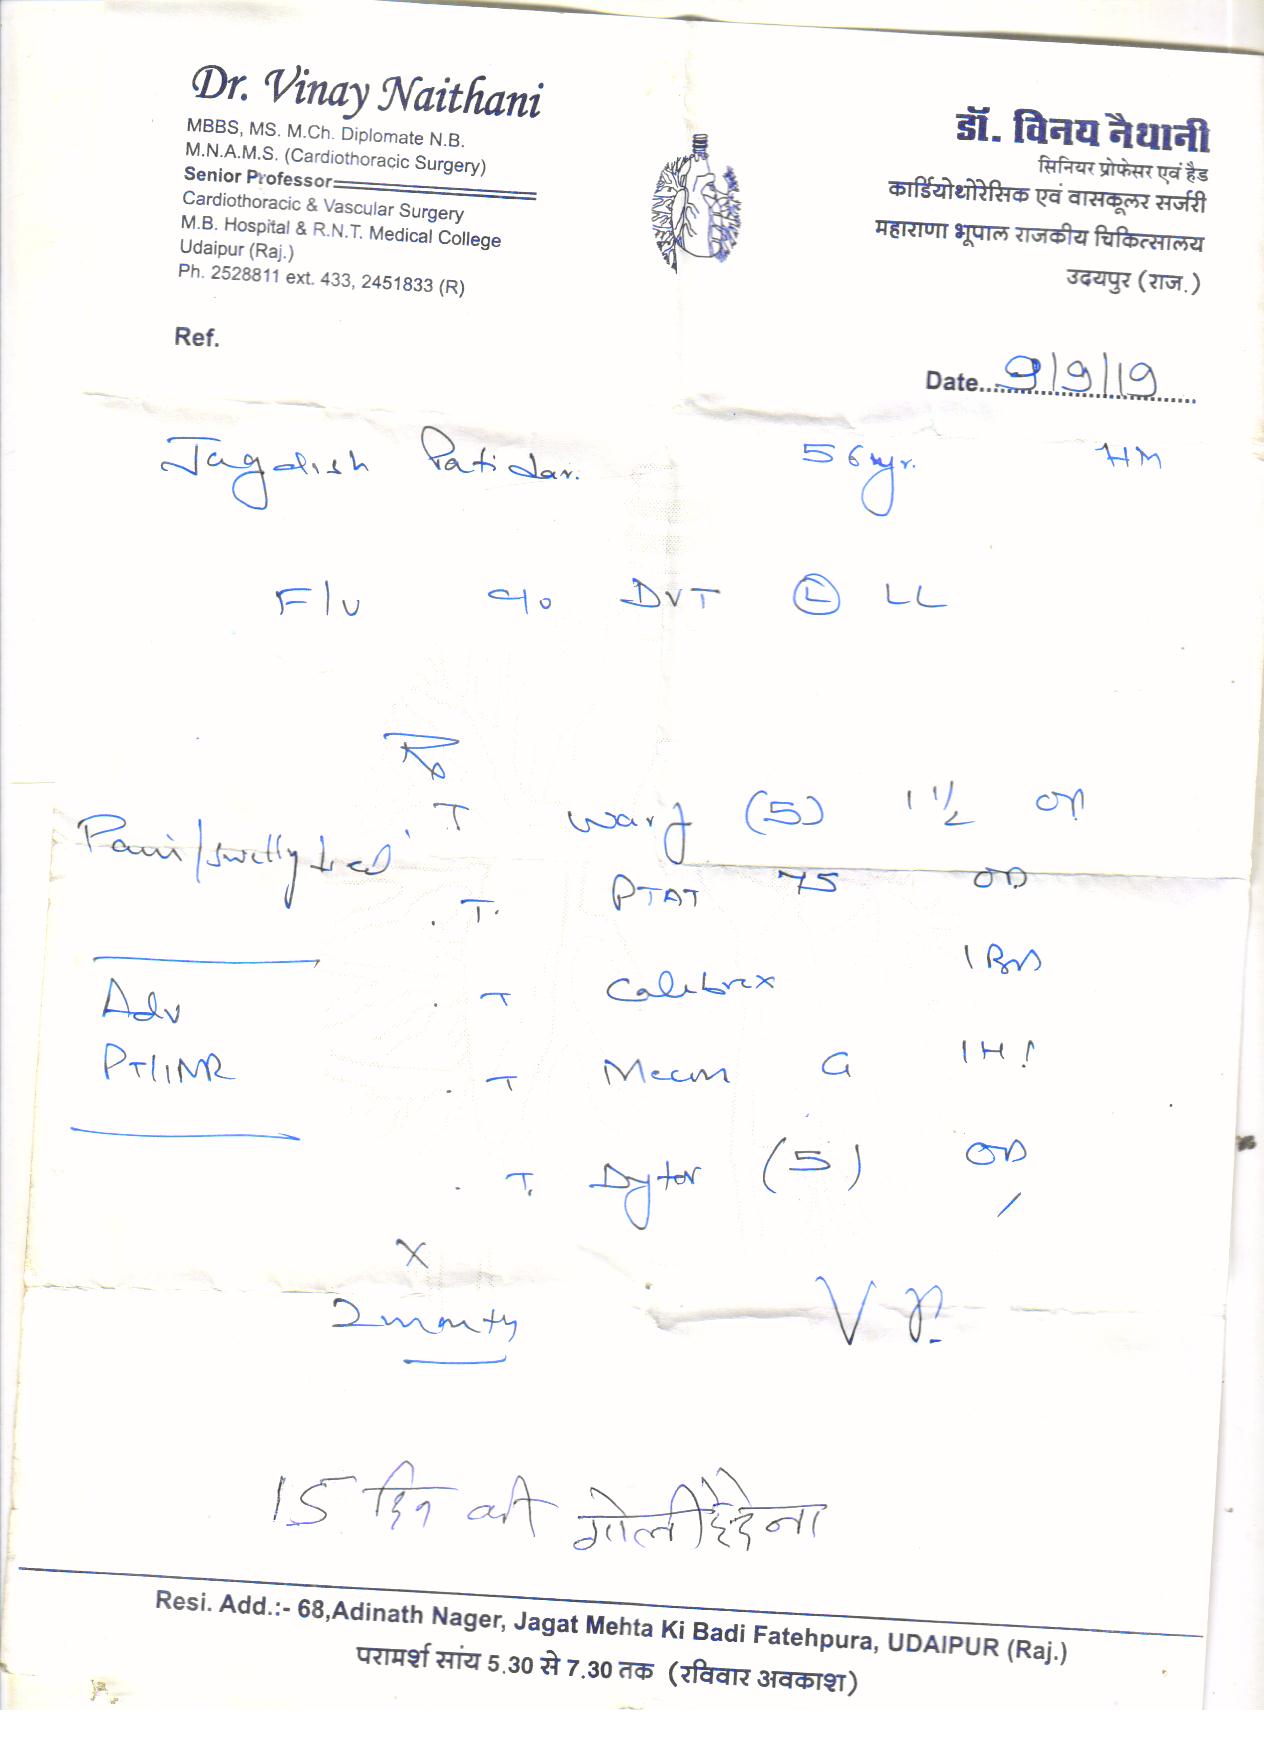 Dr. Vinay Naithani
MBBS, MS. M.Ch. Diplomate N.B.
M.N.A.M.S. (Cardiothoracic Surgery)
Senior Professor
Cardiothoracic & Vascular Surgery
M.B. Hospital & R.N.T. Medical College
Udaipur (Raj.)
Ph. 2528811 ext. 433, 2451833 (R)
डॉ. विनय नैथानी
सिनियर प्रोफेसर एवं हैड
कार्डियोथोरेसिक एवं वासकूलर सर्जरी
महाराणा भूपाल राजकीय चिकित्सालय
उदयपुर (राज.)
Ref.
Date... 9/9/19
Jagdish Patidar. 56 yr. HM
F/U c/o DVT Ⓛ LL
Rx
T Warf (5) 1 1/2 OD
Pain/swelling
T. PTAT 75 OD
T 1 BD
Adv
PT/INR
T G 1
T. Dytor (5) OD
X
2 month
15 दिन की गोली दे देना
Resi. Add.:- 68,Adinath Nager, Jagat Mehta Ki Badi Fatehpura, UDAIPUR (Raj.)
परामर्श सांय 5.30 से 7.30 तक (रविवार अवकाश)